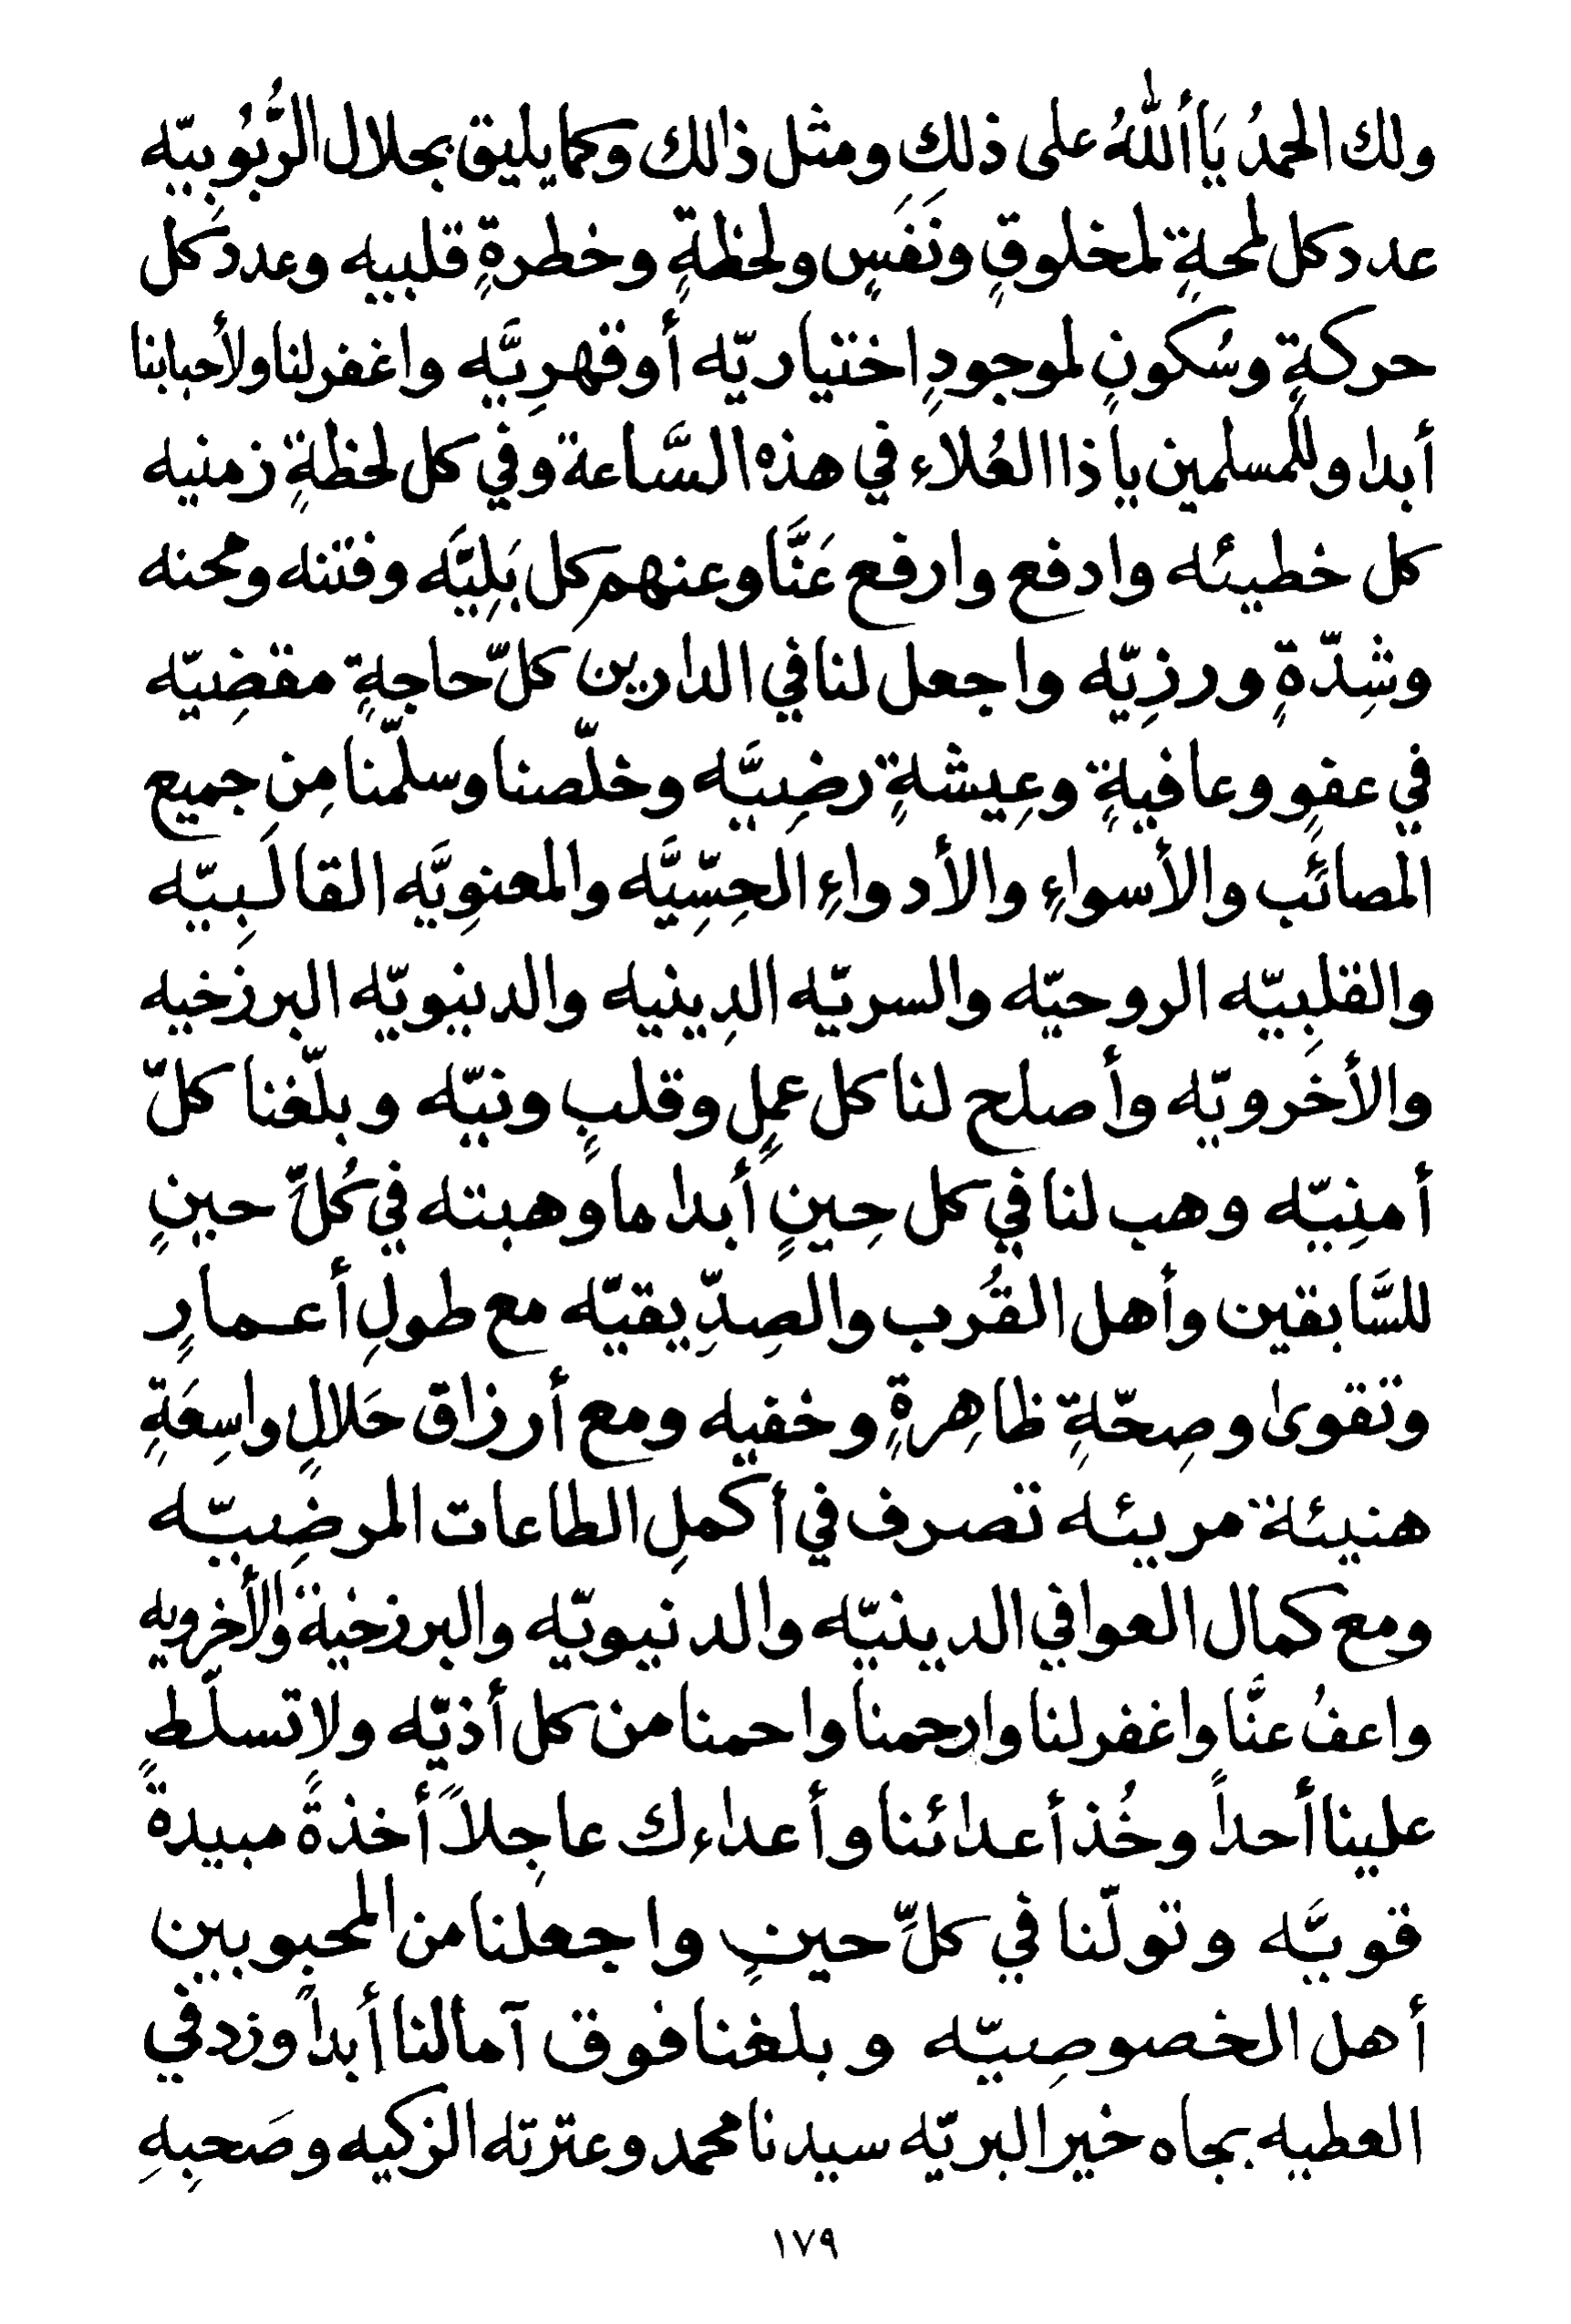 ولك الحمدُ يَا أللهُ على ذلك ومثل ذالك وكما يليق بجلال الرُّبُوبِيّه
عدد كل لمحةٍ لمخلوقٍ ونَفَسٍ ولحظةٍ وخطرةٍ قلبيه وعدد كل
حركةٍ وسُكونٍ لموجودٍ اختياريّه أو قهرِيَّه واغفر لنا ولأحبابنا
أبدا وللمسلمين يا ذا العُلاء في هذه السَّاعة وفي كل لحظةٍ زمنيه
كل خطيئه وادفع وارفع عَنَّا وعنهم كل بَلِيَّه وفتنه ومحنه
وشِدّةٍ ورزِيّه واجعل لنا في الدارين كلّ حاجةٍ مقضِيّه
في عفوٍ وعافيةٍ وعِيشةٍ رضِيَّه وخلّصنا وسلّمنا مِن جميع
المصائب والأسواءِ والأدواءِ الحِسِّيَّه والمعنوِيَّه القالَبِيّه
والقلبِيّه الروحيّه والسريّه الدِينيه والدنيويّه البرزخيه
والأخرويّه وأصلح لنا كل عملٍ وقلبٍ ونيّه وبلّغنا كلّ
أمنِيّه وهب لنا في كل حِينٍ أبدا ما وهبته في كُلِّ حينٍ
للسَّابقين وأهل القُرب والصِدِّيقيّه مع طولِ أعمارٍ
وتقوىٰ وصِحّةٍ ظاهِرةٍ وخفيه ومع أرزاق حَلالٍ واسِعَةٍ
هنيئة مريئه تصرف في أكملِ الطاعات المرضِيّه
ومع كمال العوافي الدينيّه والدنيويّه والبرزخية والأخرويه
واعفُ عنَّا واغفر لنا وارحمنا واحمنا من كل أذيّه ولا تسلّط
علينا أحداً وخُذ أعدائنا وأعداءك عاجِلاً أخذةً مبيدةً
قويَّه وتولّنا في كلِّ حينٍ واجعلنا من المحبوبين
أهل الخصوصِيّه وبلغنا فوق آمالنا أبداً وزد في
العطيه بجاه خير البريّه سيدنا محمد وعترته الزكيه وصَحبِهِ
١٧٩